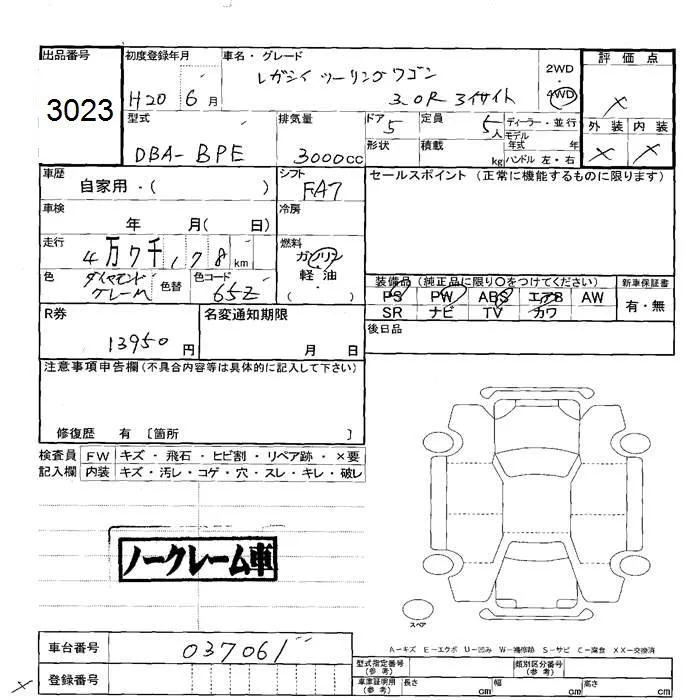 出品番号
3023
初度登録年月
H20 6月
車名・グレード
レガシィツーリングワゴン
3.0R 3イサイト
2WD
4WD
評価点
×
外装 内装
× ×
型式
DBA-BPE
排気量
3000cc
ドア 5
形状
定員 5人
積載 kg
ディーラー・並行
モデル年式 年
ハンドル 左・右
車歴
自家用・( )
シフト
FA7
セールスポイント(正常に機能するものに限ります)
車検
年 月( 日)
冷房
走行
4万7千178km
燃料
ガソリン
軽油
( )
色
ダイヤモンド
グレーM
色替
色コード
65Z
装備品(純正品に限り○をつけてください)
PS PW ABS エアB AW
SR ナビ TV カワ
新車保証書
有・無
R券
13950円
名変通知期限
月 日
後日品
注意事項申告欄(不具合内容等は具体的に記入して下さい)
修復歴 有 〔箇所 〕
検査員 FW キズ・飛石・ヒビ割・リペア跡・×要
記入欄 内装 キズ・汚レ・コゲ・穴・スレ・キレ・破レ
ノークレーム車
スペア
A-キズ E-エクボ U-凹み W-補修跡 S-サビ C-腐食 XX-交換済
車台番号
037061
登録番号
×
型式指定番号(参考)
類別区分番号(参考)
車庫証明用(参考) 長さ cm 幅 cm 高さ cm